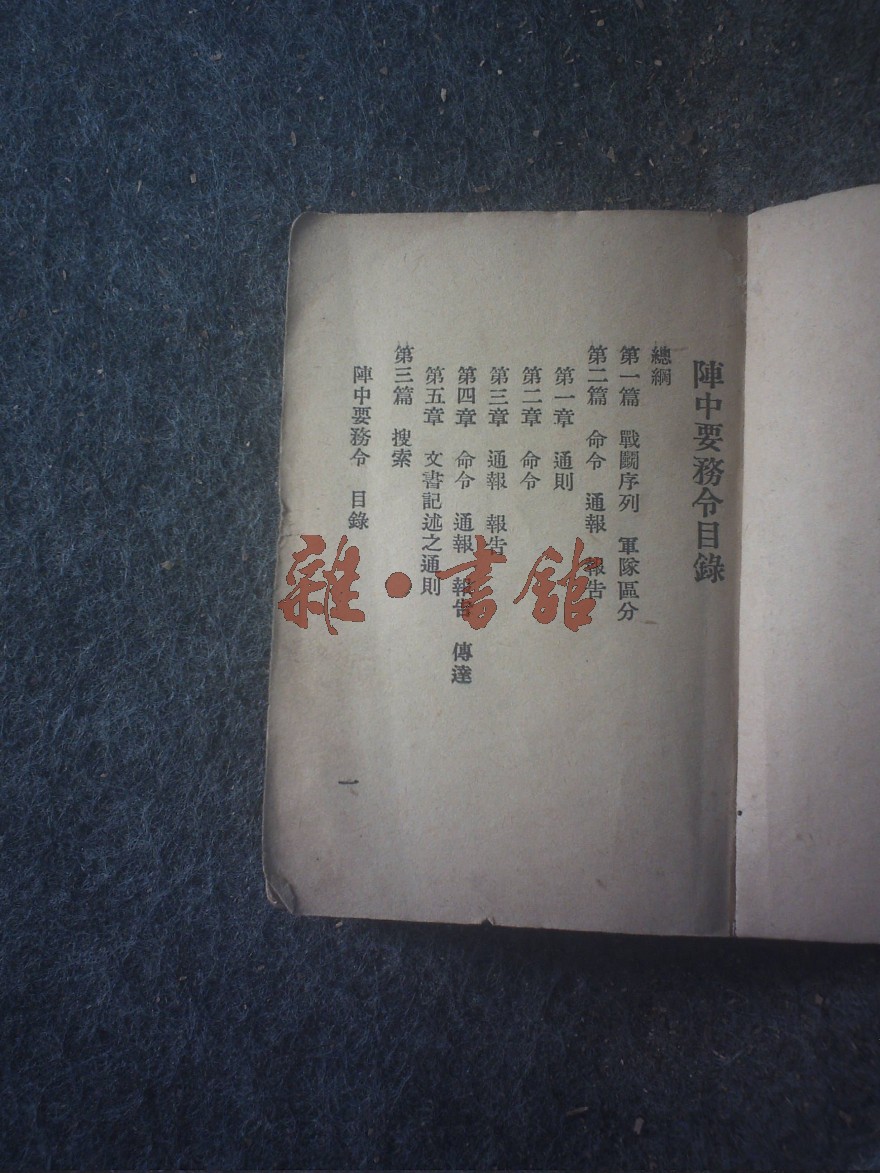 陣中要務令目錄
總綱
第一篇 戰鬭序列 軍隊區分
第二篇 命令 通報 報告
第一章 通則
第二章 命令
第三章 通報 報告
第四章 命令 通報 報告 傳達
第五章 文書記述之通則
第三篇 搜索
陣中要務令 目錄
一
雜·書館